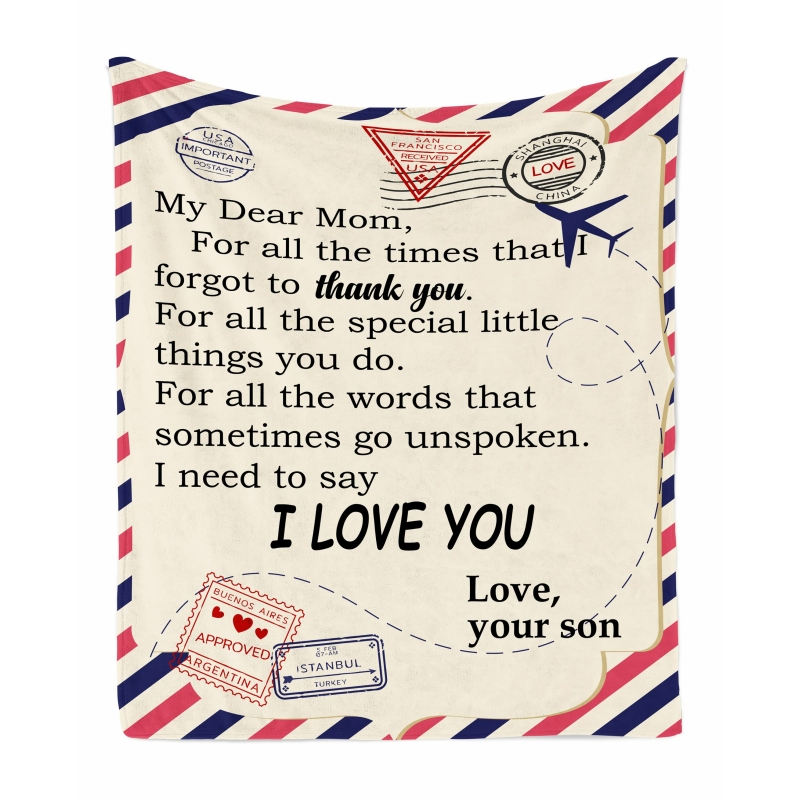 USA
CHICAGO
IMPORTANT
POSTAGE
SAN
FRANCISCO
RECEIVED
USA
SHANGHAI
LOVE
CHINA
My Dear Mom,
For all the times that I
forgot to thank you.
For all the special little
things you do.
For all the words that
sometimes go unspoken.
I need to say
I LOVE YOU
Love,
your son
BUENOS AIRES
APPROVED
ARGENTINA
5 FEB
07-AM
ISTANBUL
TURKEY